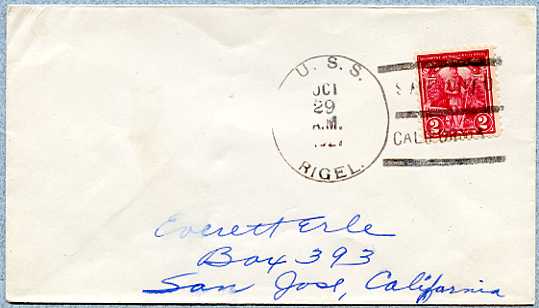 U. S. S.
OCT
29
A.M.
1927
RIGEL.
CALIFORNIA
2 2
Everett Erle
Box 393
San Jose, California